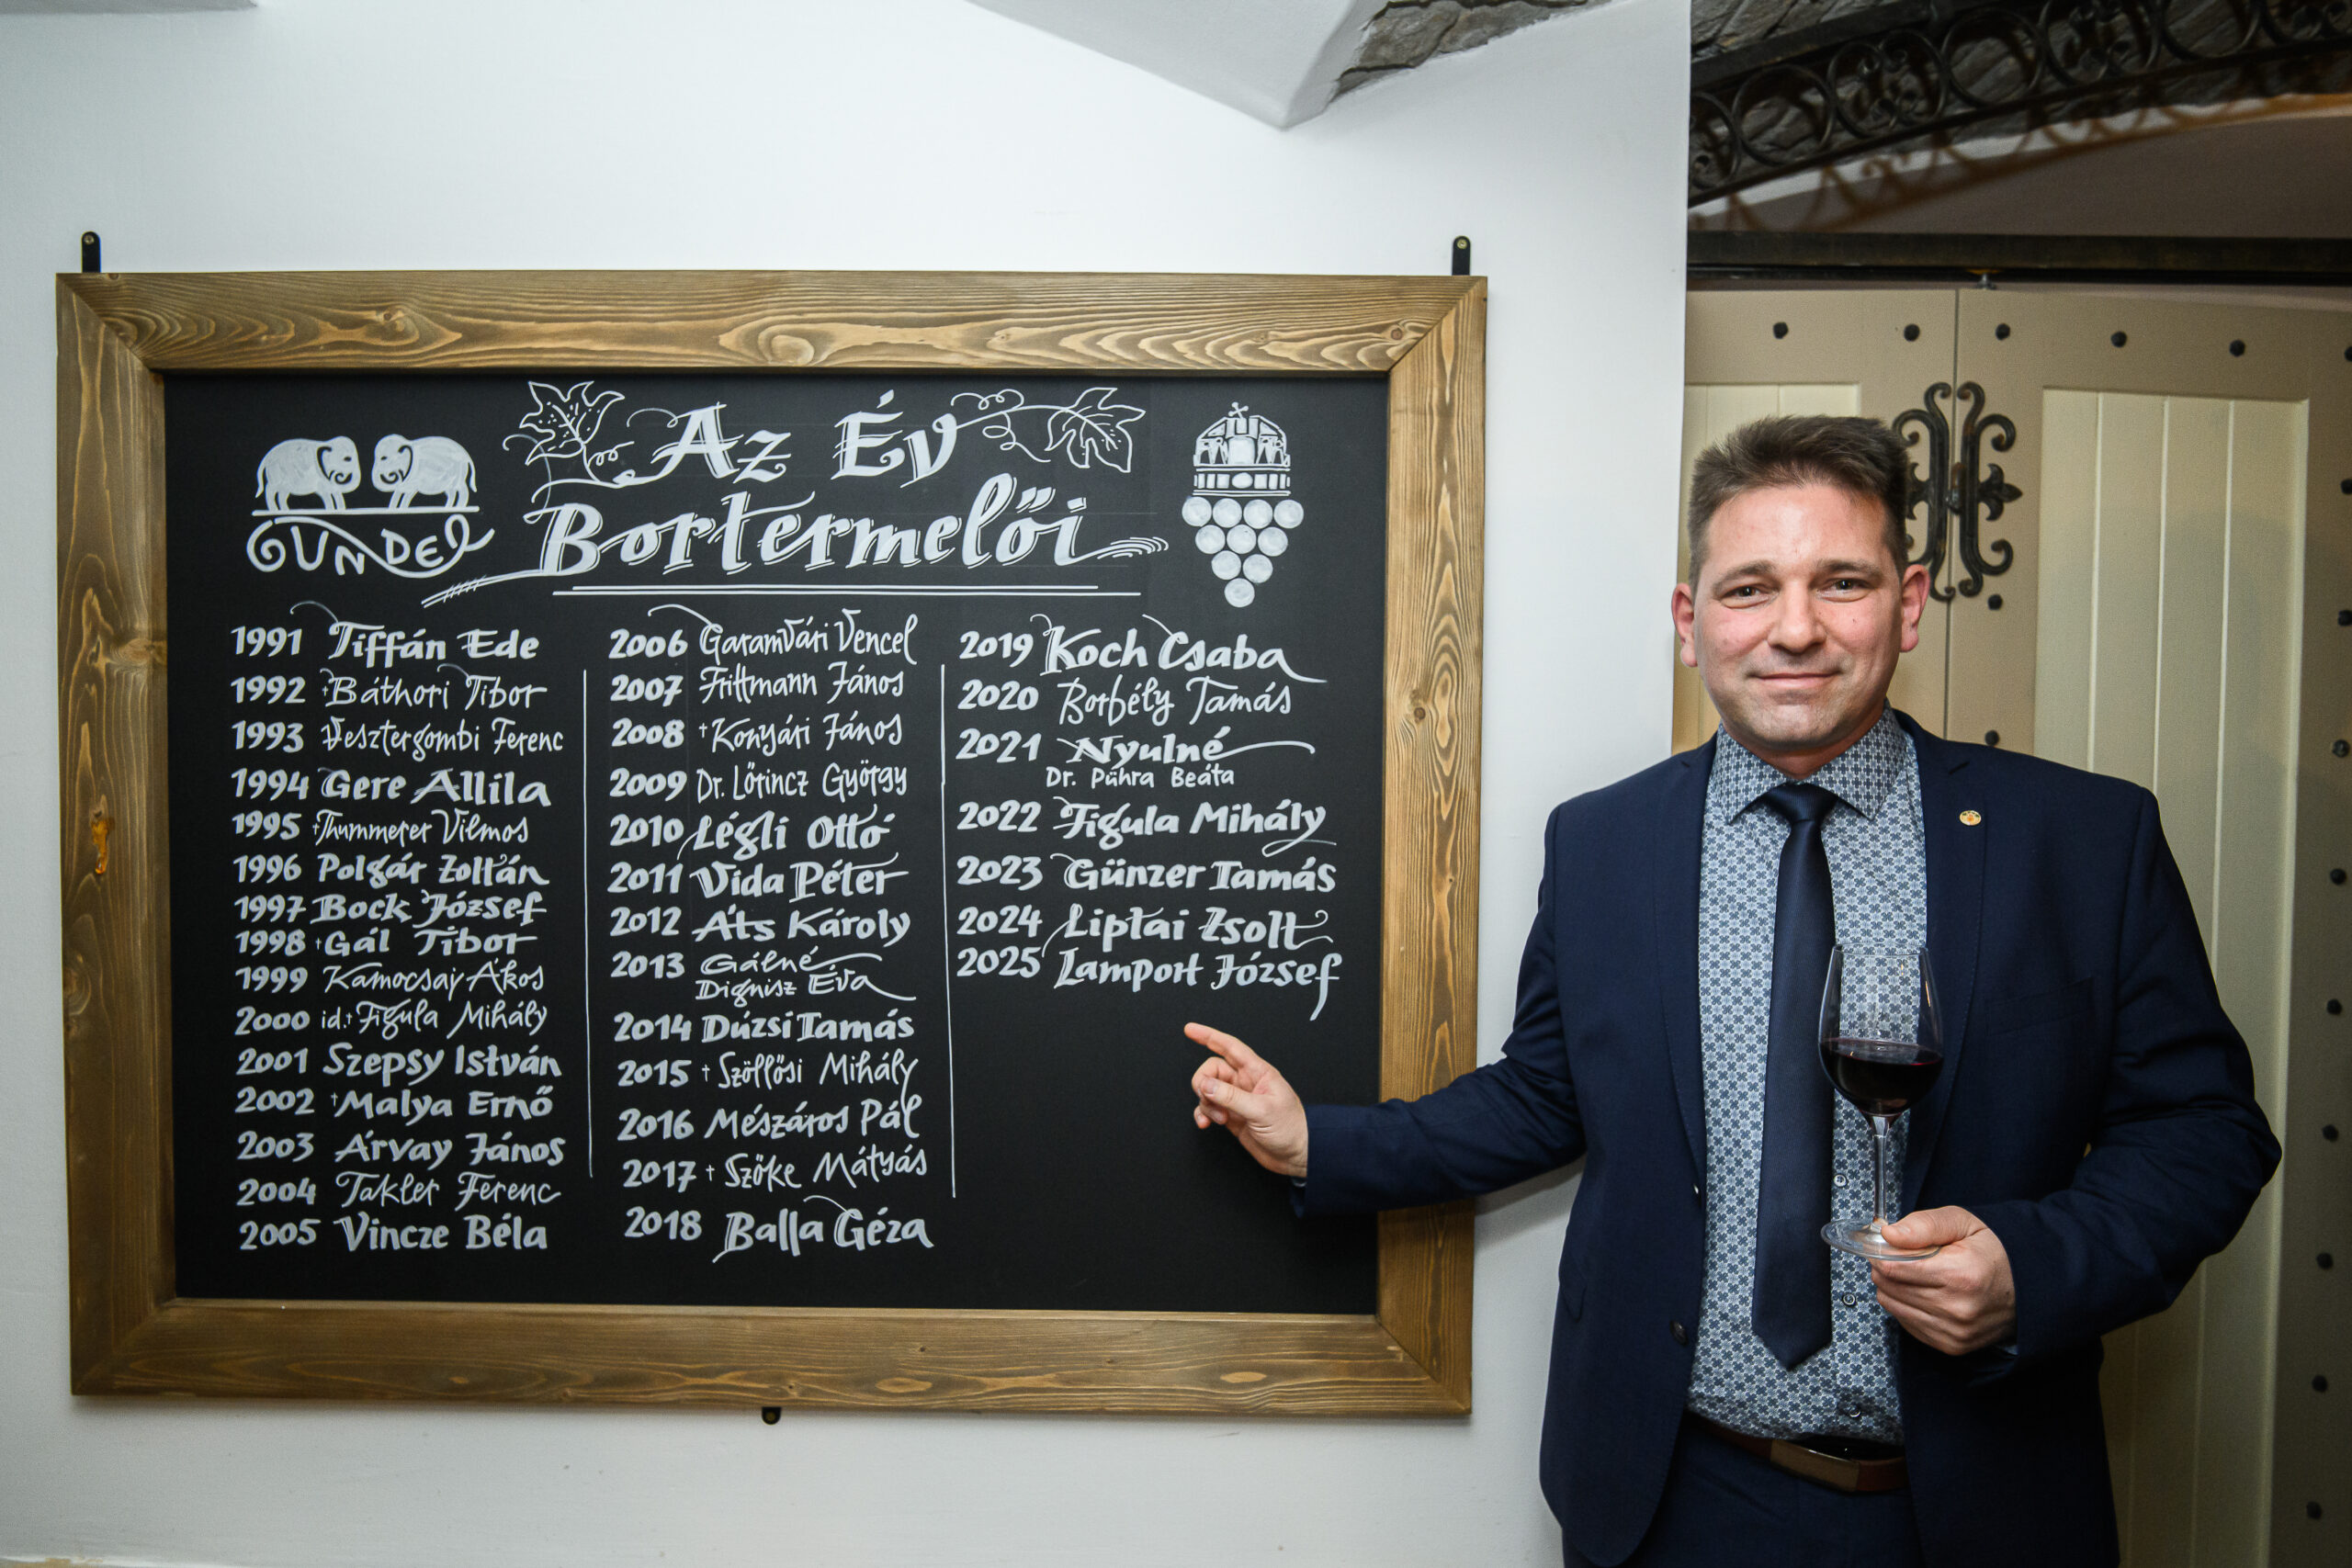 GUNDEL
Az Év
Bortermelői
1991 Tiffán Ede
1992 †Báthori Tibor
1993 Vesztergombi Ferenc
1994 Gere Attila
1995 †Thummerer Vilmos
1996 Polgár Zoltán
1997 Bock József
1998 †Gál Tibor
1999 Kamocsay Ákos
2000 id.† Figula Mihály
2001 Szepsy István
2002 †Malya Ernő
2003 Árvay János
2004 Takler Ferenc
2005 Vincze Béla
2006 Garamvári Vencel
2007 Frittmann János
2008 †Konyári János
2009 Dr. Lőrincz György
2010 Légli Ottó
2011 Vida Péter
2012 Áts Károly
2013 Gálné
Dignisz Éva
2014 Dúzsi Tamás
2015 †Szöllősi Mihály
2016 Mészáros Pál
2017 †Szőke Mátyás
2018 Balla Géza
2019 Koch Csaba
2020 Borbély Tamás
2021 Nyulné
Dr. Pühra Beáta
2022 Figula Mihály
2023 Günzer Tamás
2024 Liptai Zsolt
2025 Lamport József